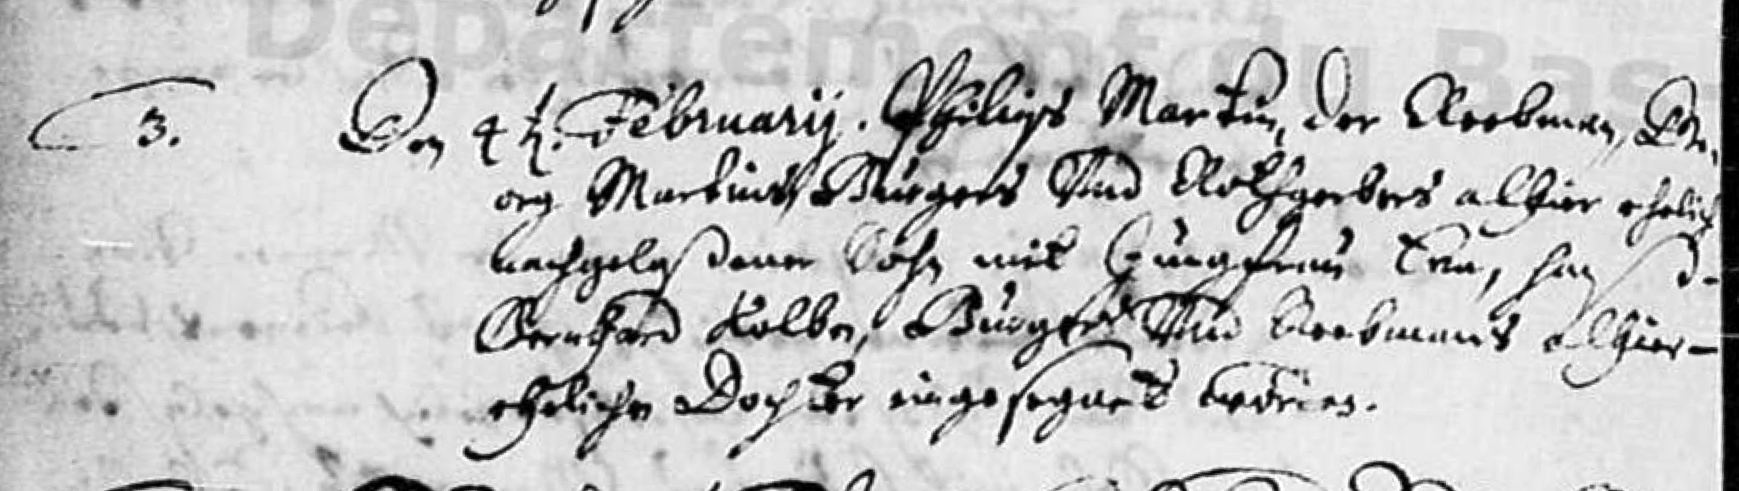 Departement du Bas
3. Den 4t. Februarij. Philips Martin, der Rebman, Ge-
org Martins, Burgers Vnd Rothgerbers alhier ehelich
nachgelaßener Sohn mit Jungfrau Eva, Hanß
Bernhard Kolben, Burgers Vnd Rebmans alhier
eheliche Dochter eingesegnet worden.